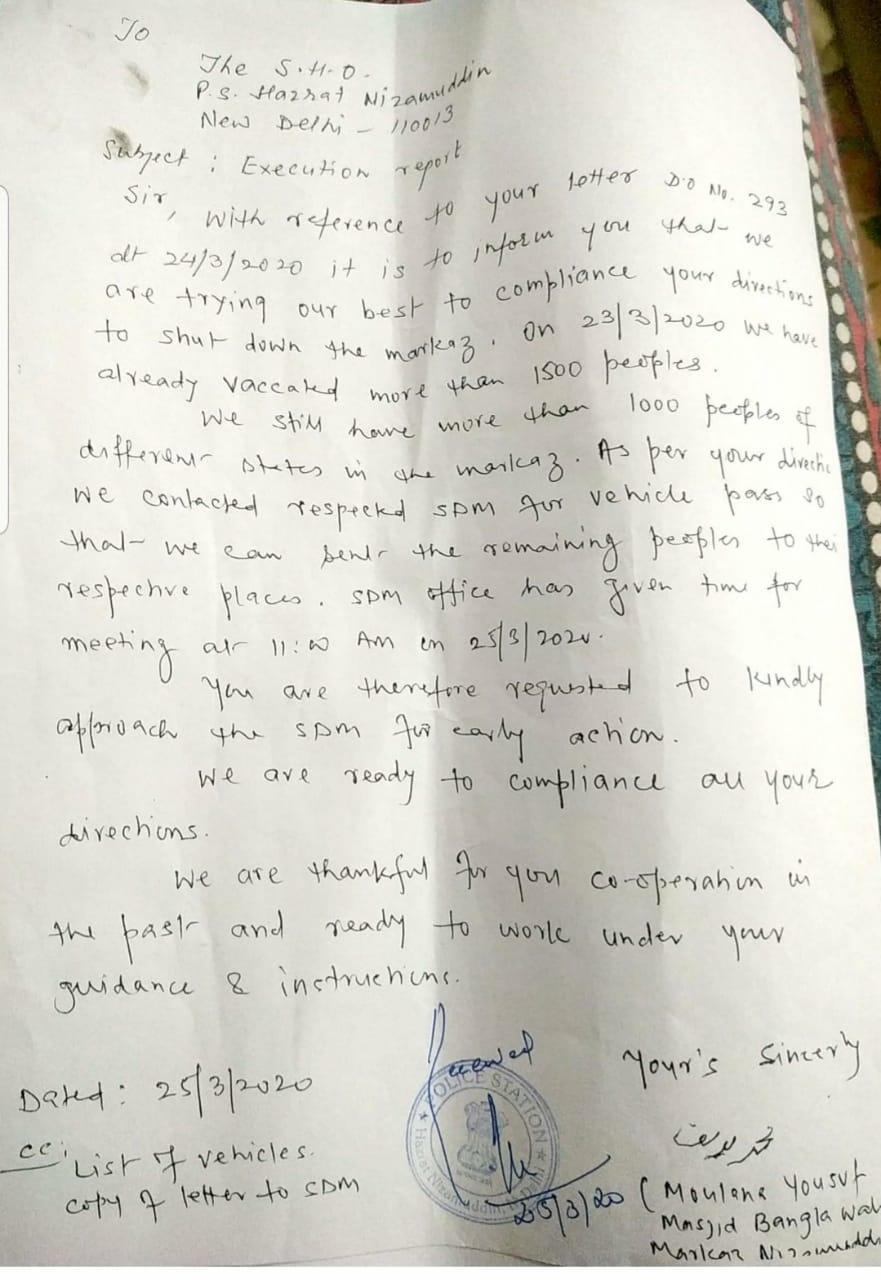 To
The S.H.O.
P.S. Hazrat Nizamuddin
New Delhi - 110013
Subject : Execution report
Sir,
With reference to your letter D.O No. 293
dt 24/3/2020 it is to inform you that we
are trying our best to compliance your directions
to shut down the markaz. On 23/3/2020 we have
already vaccated more than 1500 peoples.
We still have more than 1000 peoples of
different states in the markaz. As per your directi
we contacted respected SDM for vehicle pass so
that we can sent the remaining peoples to thei
respective places. SDM office has given time for
meeting at 11:00 AM on 25/3/2020.
You are therefore requested to kindly
approach the SDM for early action.
We are ready to compliance all your
directions.
We are thankful for you co-operation in
the past and ready to work under your
guidance & instructions.
Dated : 25/3/2020
cc: List of vehicles.
copy of letter to SDM
Received
POLICE STATION
Hazrat Nizamuddin, N. Delhi
25/3/20
Your's Sincerly
محمد یوسف
(Moulana Yousuf
Masjid Bangla Wali
Markaz Nizamuddi